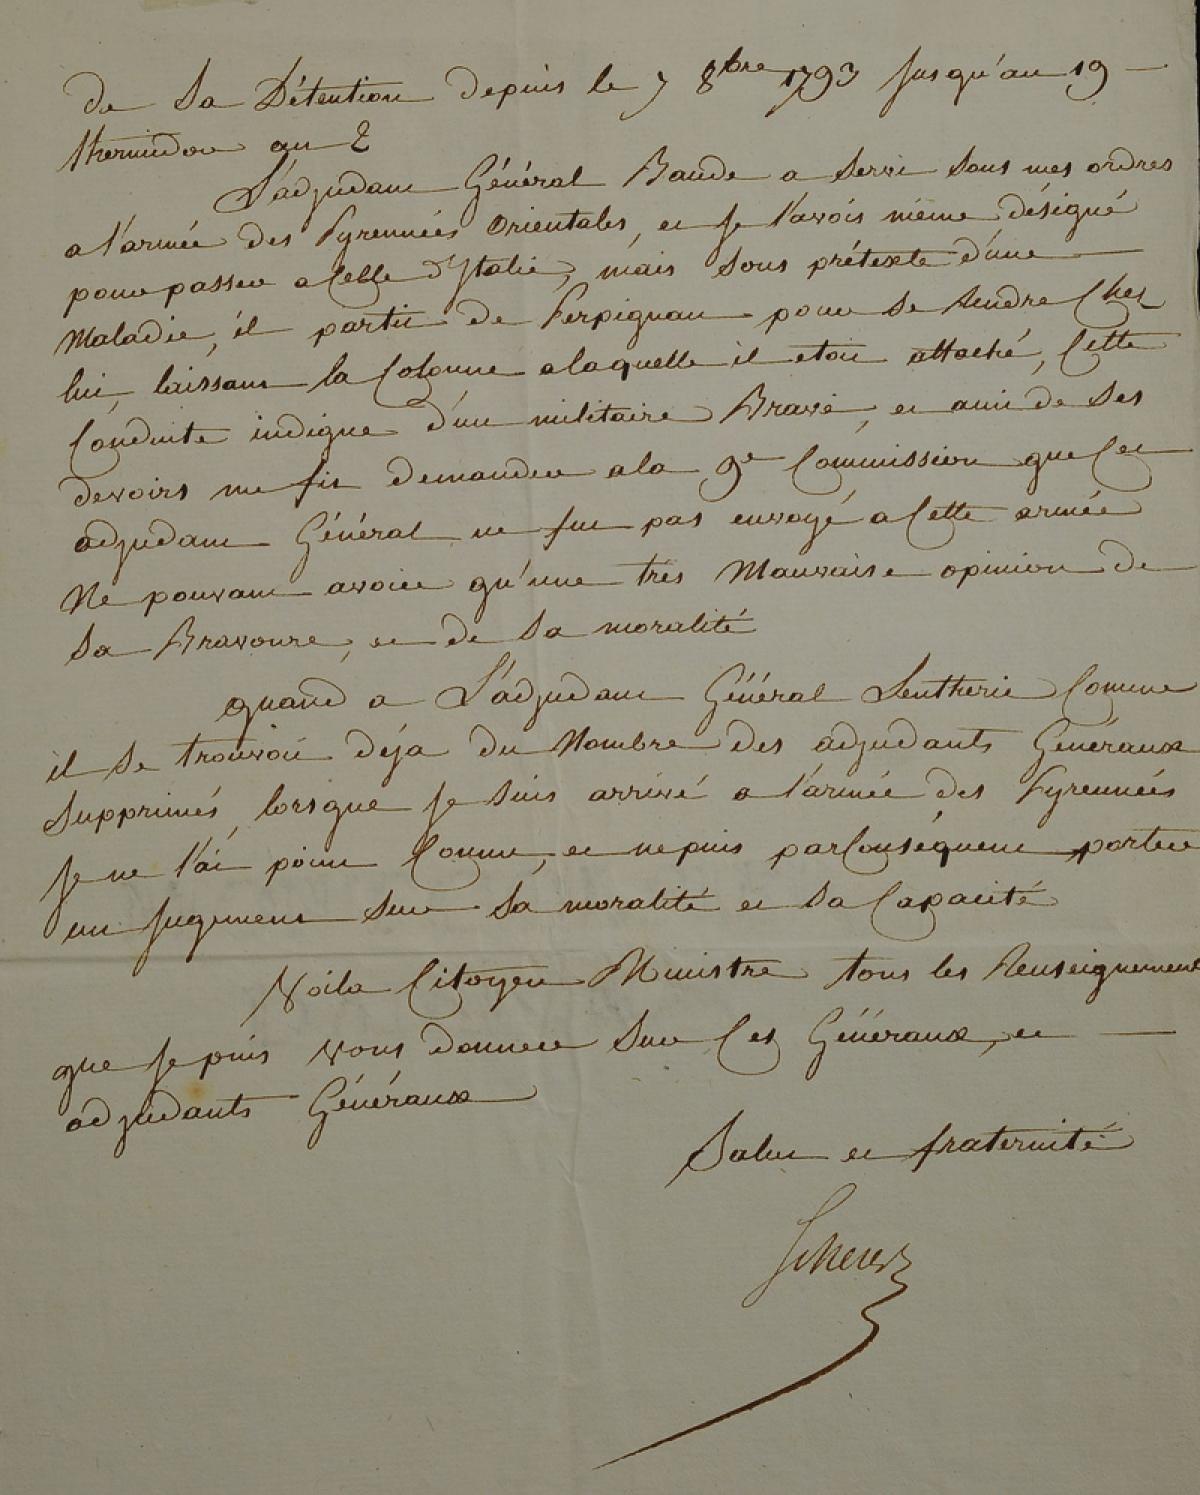 de Sa Détention depuis le 7 8bre 1793 Jusqu'au 19
thermidor an 2
L'adjudant Général Baude a servi sous mes ordres
a l'armée des Pyrennées Orientales, et je l'avois même désigné
pour passer a Celle d'Ytalie, mais sous prétexte d'une
Maladie, il partit de Perpignan pour se Rendre Chez
lui, laissant la Colonne a laquelle il etoit attaché, Cette
Conduite indigne d'un militaire Brave, et ami de ses
devoirs me fit demander a la 9e Commission que Cet
adjudant Général ne fut pas envoyé a Cette armée
Ne pouvant avoir qu'une très Mauvaise opinion de
sa Bravoure, et de sa moralité
quand a L'adjudant Général Sentherie Comme
il se trouvoit déja du Nombre des adjudants Généraux
Supprimés, lorsque je suis arrivé a l'armée des Pyrennées
je ne l'ai point Connu, et ne puis par Conséquent porter
un jugement sur sa moralité et sa Capacité
Voila Citoyen Ministre tous les Renseignement
que je puis vous donner sur Ces Généraux, et
adjudants Généraux
Salut et fraternité
Scherer